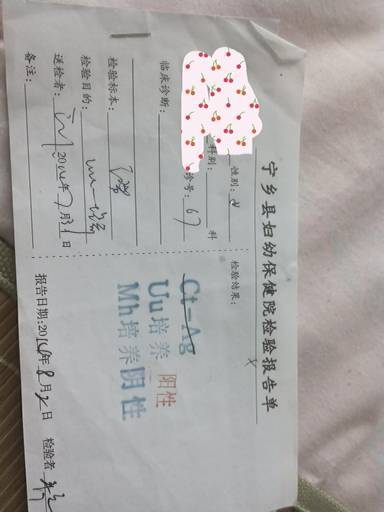 宁乡县妇幼保健院检验报告单
性别：
科别： 科
诊号：67
临床诊断：
检验标本：
检验目的：
送检者： 2014年7月31日
备注：
检验结果：
Ct-Ag
Uu培养 阳性
Mh培养 阴性
报告日期：2014年8月2日 检验者